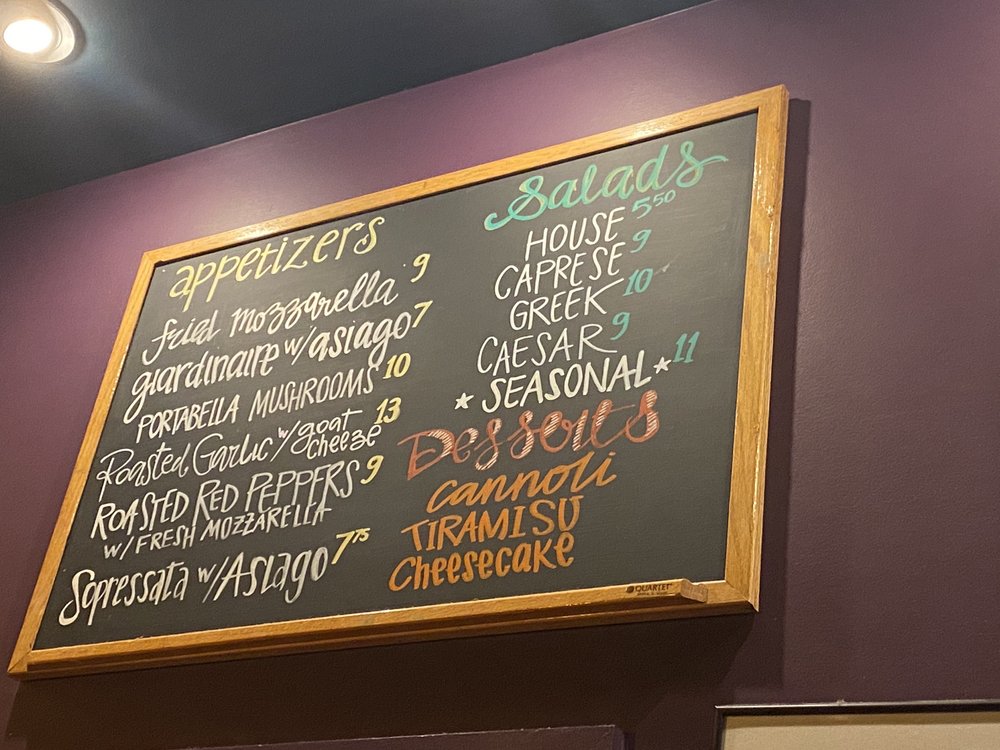 appetizers
fried mozzarella 9
giardinaire w/ asiago 7
PORTABELLA MUSHROOMS 10
Roasted Garlic w/ goat cheeze 13
ROASTED RED PEPPERS 9
w/ FRESH MOZZARELLA
Sopressata w/ Asiago 7 75
Salads
HOUSE 5 50
CAPRESE 9
GREEK 10
CAESAR 9
*SEASONAL* 11
Desserts
cannoli
TIRAMISU
Cheesecake
QUARTET